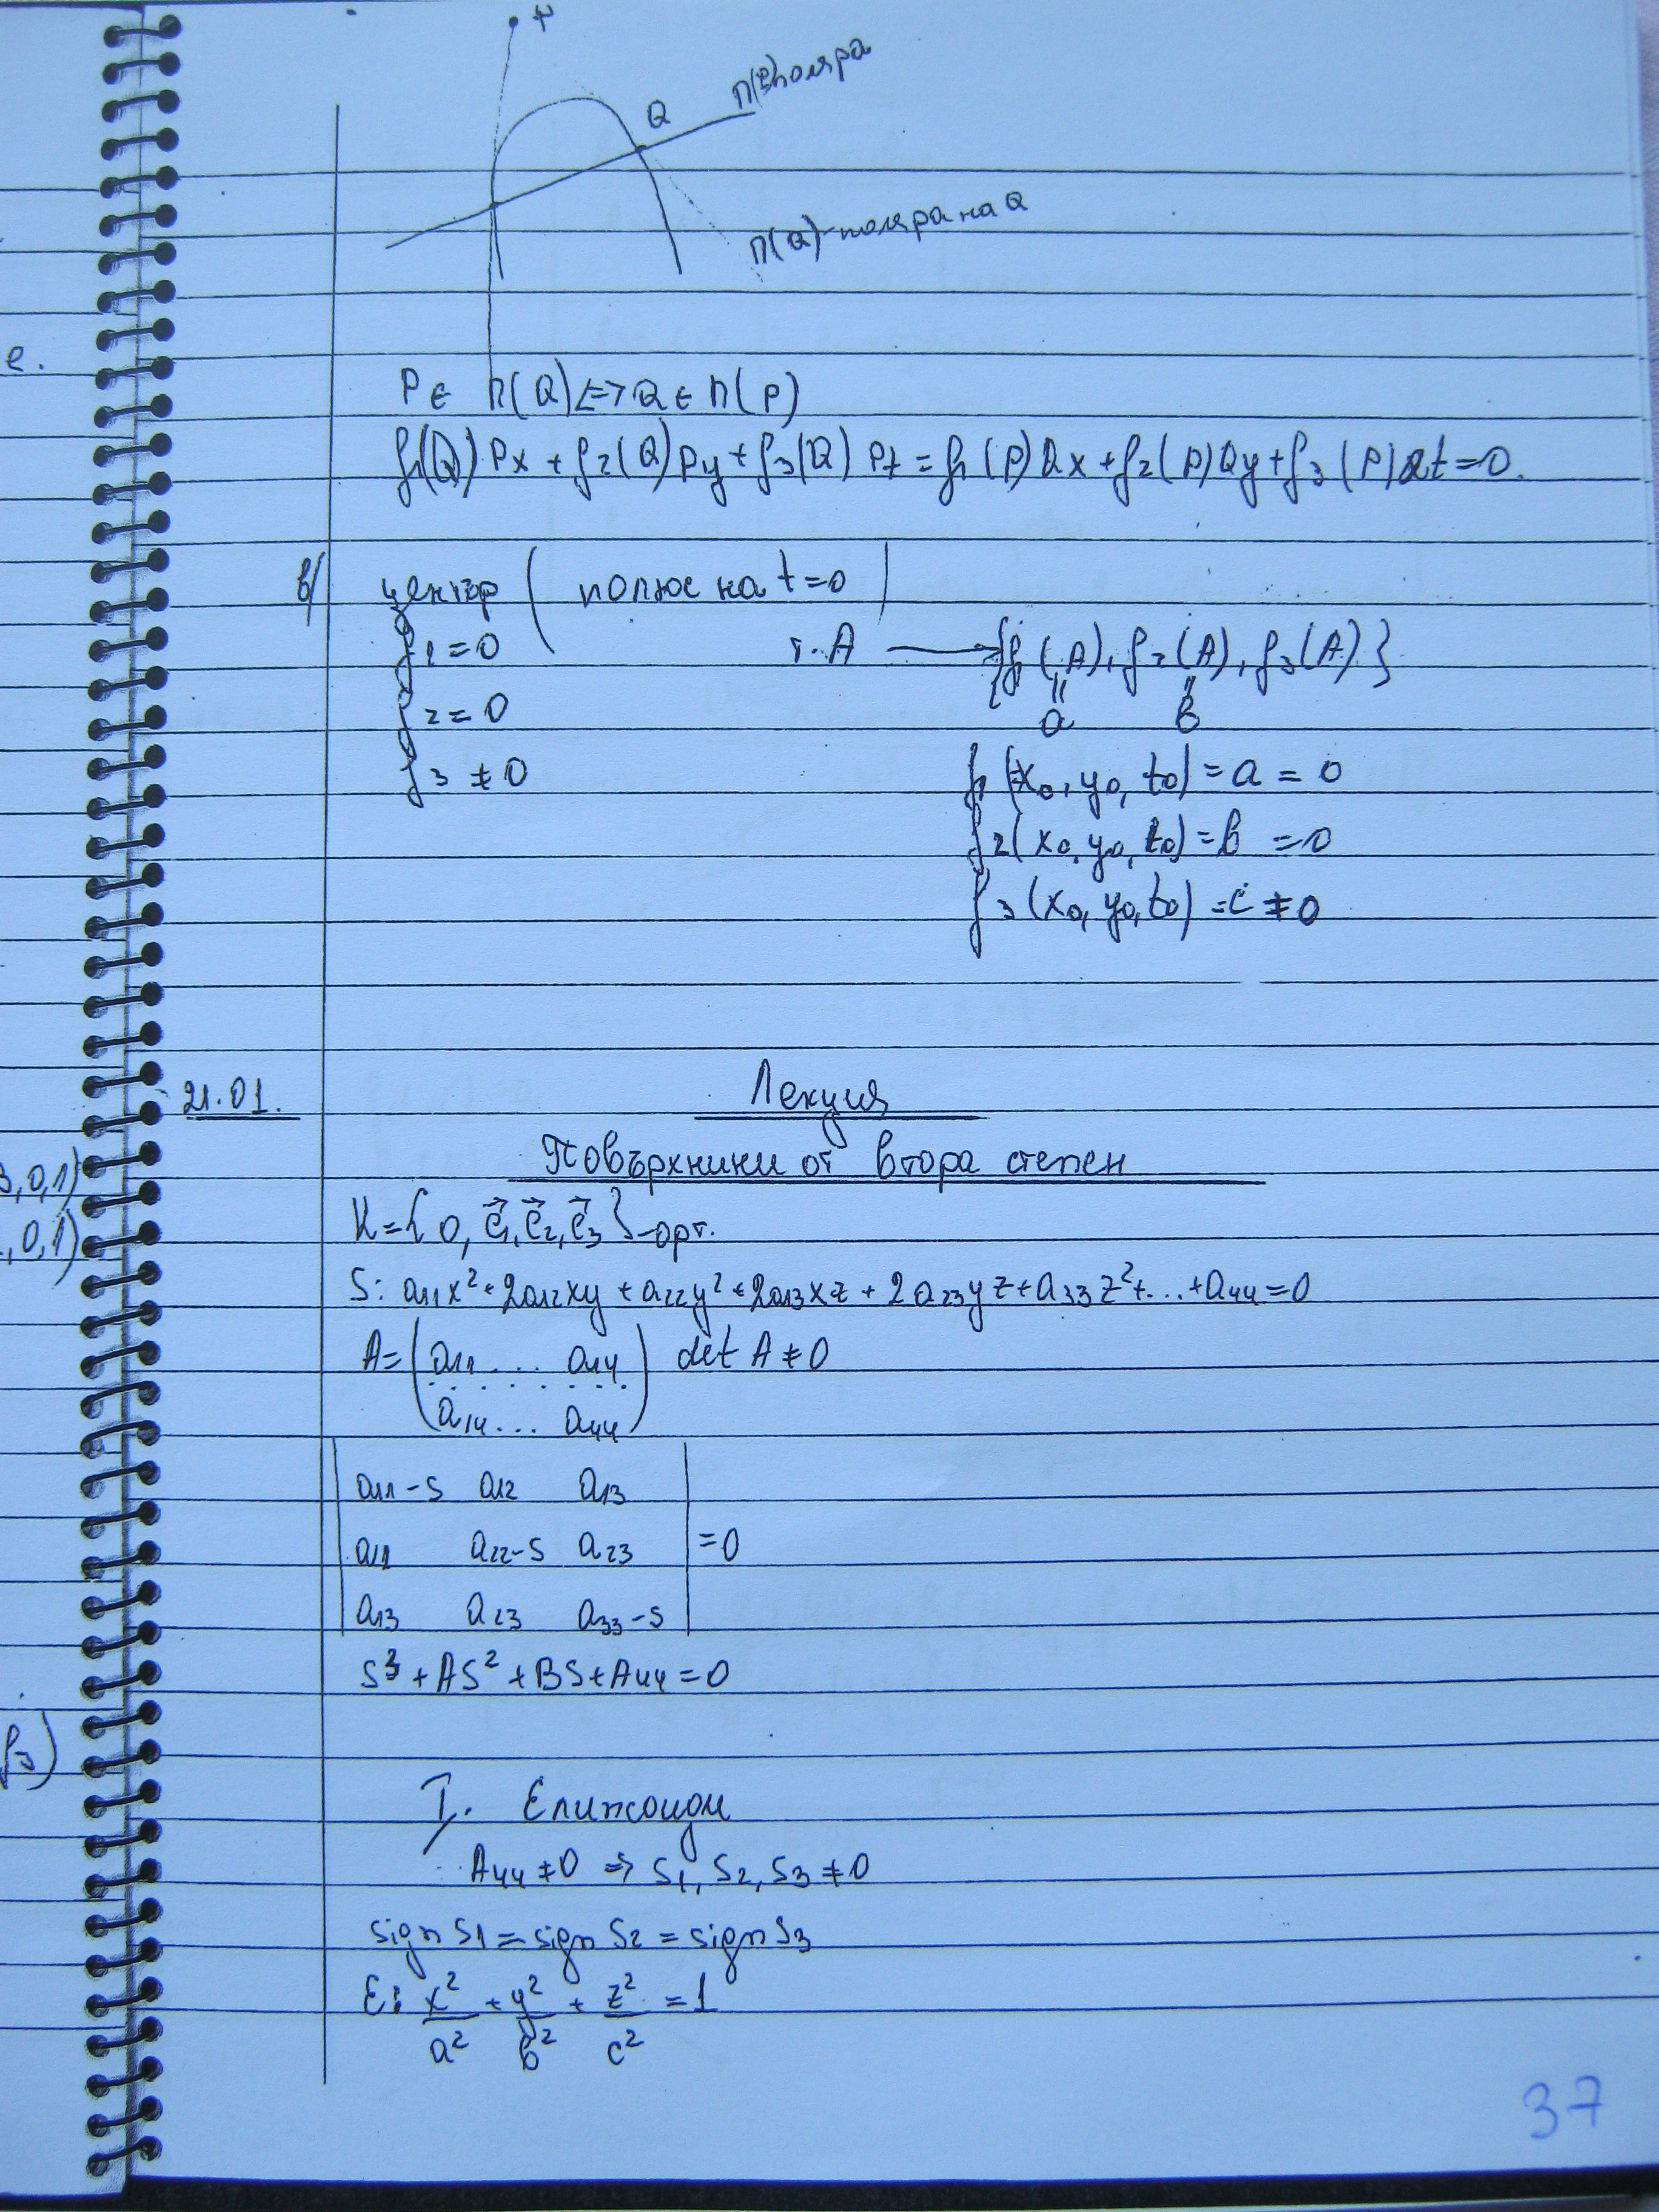 P
π(P) поляра
Q
π(Q) - поляра на Q
е.
P ∈ π(Q) <=> Q ∈ π(P)
f₁(Q)Px + f₂(Q)Py + f₃(Q)Pt = f₁(P)Qx + f₂(P)Qy + f₃(P)Qt = 0.
в/ център ( полюс на t=0 )
f₁ = 0 т. A ⟶ {f₁(A), f₂(A), f₃(A)}
f₂ = 0 " a " в
f₃ ≠ 0 f₁(x₀, y₀, t₀) = a = 0
f₂(x₀, y₀, t₀) = в = 0
f₃(x₀, y₀, t₀) = c ≠ 0
21.01. Лекция
Повърхнини от втора степен
3,0,1)
K = {O, e⃗₁, e⃗₂, e⃗₃} - орт.
,0,1)
S: a₁₁x² + 2a₁₂xy + a₂₂y² + 2a₁₃xz + 2a₂₃yz + a₃₃z² + ... + a₄₄ = 0
A = ( a₁₁ ... a₁₄ ) det A ≠ 0
. . . . . . . .
a₁₄ ... a₄₄
| a₁₁-s a₁₂ a₁₃ |
| a₁₂ a₂₂-s a₂₃ | = 0
| a₁₃ a₂₃ a₃₃-s |
s³ + As² + Bs + A₄₄ = 0
f₃)
I. Елипсоид
A₄₄ ≠ 0 ⇒ s₁, s₂, s₃ ≠ 0
sign s₁ = sign s₂ = sign s₃
ε: x²/a² + y²/в² + z²/c² = 1
37